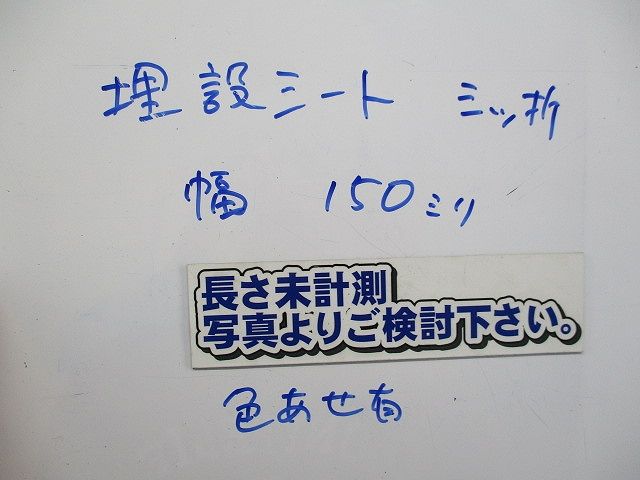 埋設シート ミツ折
幅 150ミリ
長さ未計測
写真よりご検討下さい。
色あせ有